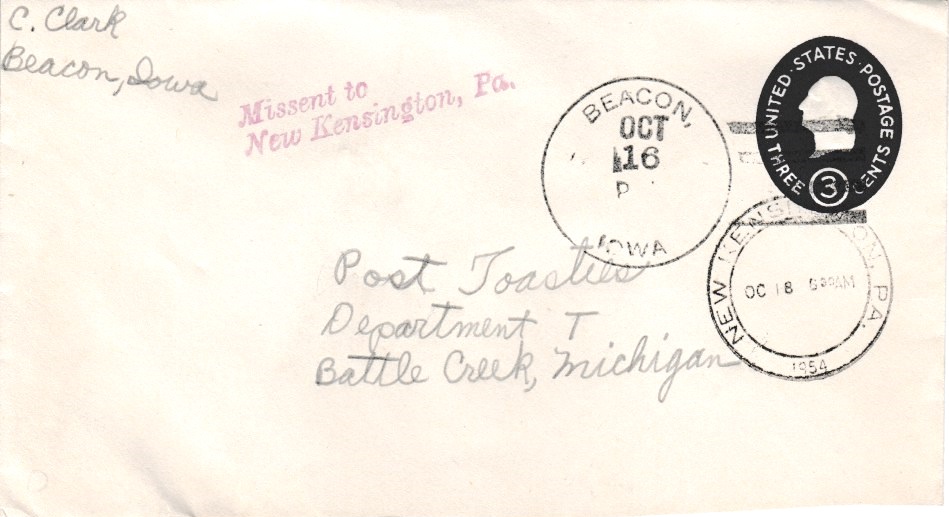 C. Clark
Beacon, Iowa
Missent to
New Kensington, Pa.
BEACON,
OCT
16
P
IOWA
UNITED·STATES·POSTAGE
THREE 3 CENTS
NEW KENSINGTON, PA.
OC 18 AM
1954
Post Toasties
Department T
Battle Creek, Michigan